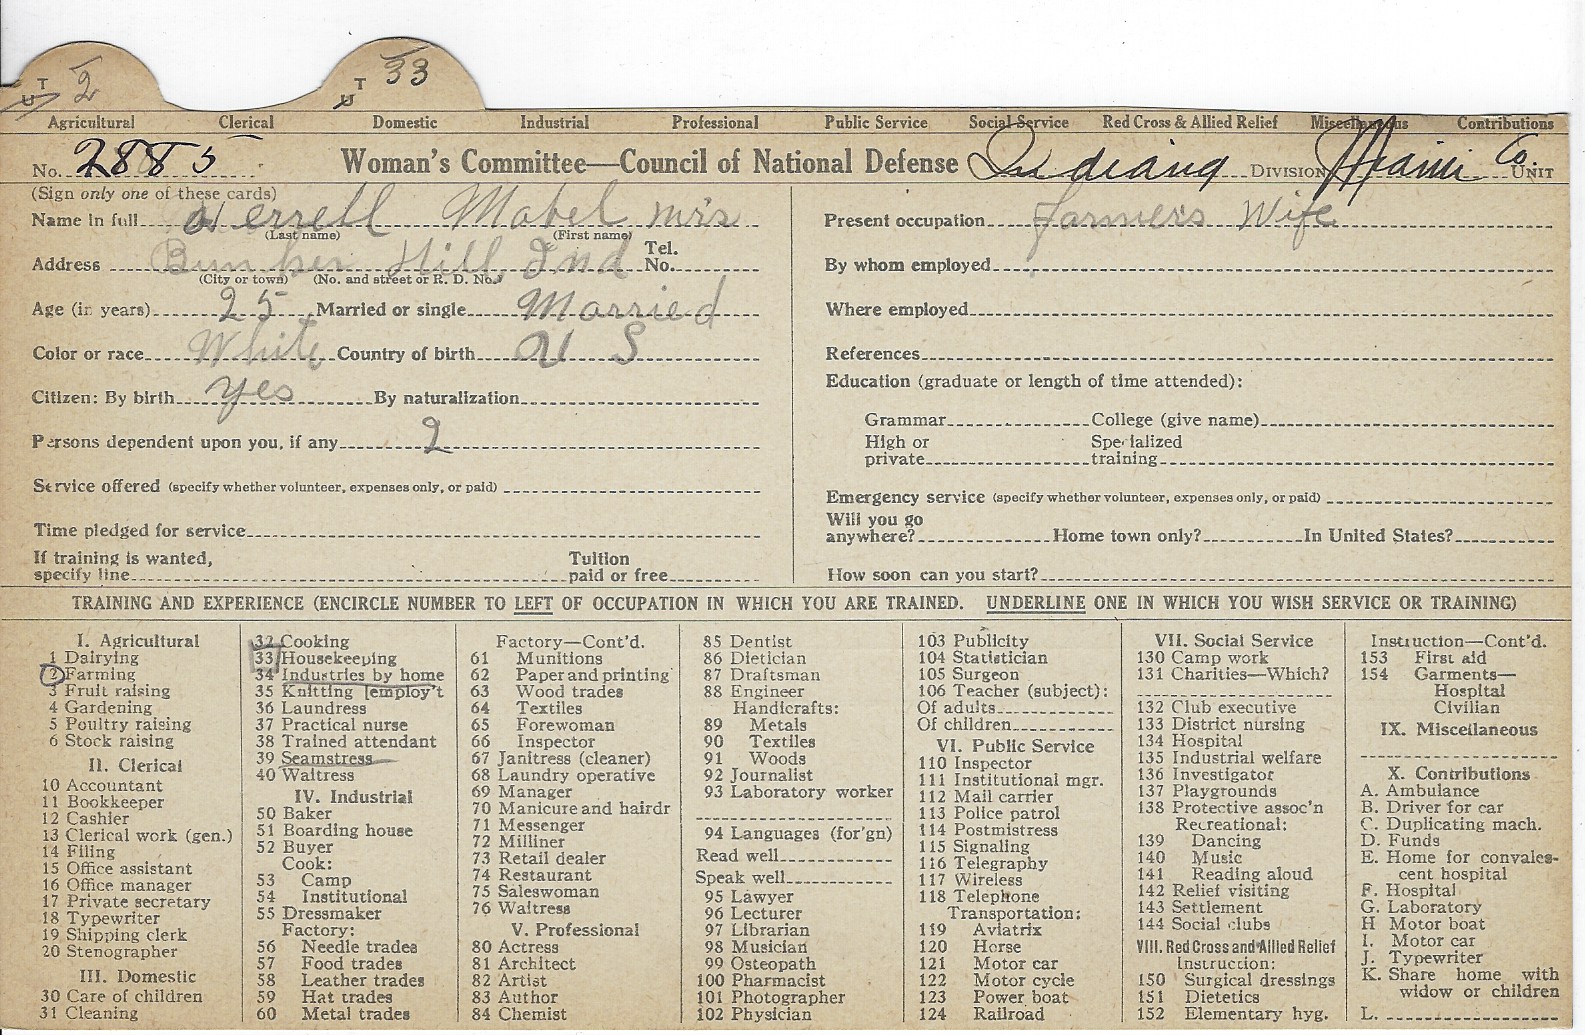 T 2 T 33
U U
Agricultural Clerical Domestic Industrial Professional Public Service Social Service Red Cross & Allied Relief Miscellaneous Contributions
No. 2885 Woman's Committee—Council of National Defense Indiana DIVISION Miami Co. UNIT
(Sign only one of these cards)
Name in full Herrell Mabel Mrs
(Last name) (First name)
Address Bunker Hill Ind Tel. No.
(City or town) (No. and street or R. D. No.)
Age (in years) 25 Married or single Married
Color or race White Country of birth U S
Citizen: By birth yes By naturalization
Persons dependent upon you, if any 2
Service offered (specify whether volunteer, expenses only, or paid)
Time pledged for service
If training is wanted, specify line Tuition paid or free
Present occupation Farmers Wife
By whom employed
Where employed
References
Education (graduate or length of time attended):
Grammar College (give name)
High or private Specialized training
Emergency service (specify whether volunteer, expenses only, or paid)
Will you go anywhere? Home town only? In United States?
How soon can you start?
TRAINING AND EXPERIENCE (ENCIRCLE NUMBER TO LEFT OF OCCUPATION IN WHICH YOU ARE TRAINED. UNDERLINE ONE IN WHICH YOU WISH SERVICE OR TRAINING)
I. Agricultural
1 Dairying
2 Farming
3 Fruit raising
4 Gardening
5 Poultry raising
6 Stock raising
II. Clerical
10 Accountant
11 Bookkeeper
12 Cashier
13 Clerical work (gen.)
14 Filing
15 Office assistant
16 Office manager
17 Private secretary
18 Typewriter
19 Shipping clerk
20 Stenographer
III. Domestic
30 Care of children
31 Cleaning
32 Cooking
33 Housekeeping
34 Industries by home
35 Knitting [employ't
36 Laundress
37 Practical nurse
38 Trained attendant
39 Seamstress
40 Waitress
IV. Industrial
50 Baker
51 Boarding house
52 Buyer
Cook:
53 Camp
54 Institutional
55 Dressmaker
Factory:
56 Needle trades
57 Food trades
58 Leather trades
59 Hat trades
60 Metal trades
Factory—Cont'd.
61 Munitions
62 Paper and printing
63 Wood trades
64 Textiles
65 Forewoman
66 Inspector
67 Janitress (cleaner)
68 Laundry operative
69 Manager
70 Manicure and hairdr
71 Messenger
72 Milliner
73 Retail dealer
74 Restaurant
75 Saleswoman
76 Waitress
V. Professional
80 Actress
81 Architect
82 Artist
83 Author
84 Chemist
85 Dentist
86 Dietician
87 Draftsman
88 Engineer
Handicrafts:
89 Metals
90 Textiles
91 Woods
92 Journalist
93 Laboratory worker
94 Languages (for'gn)
Read well
Speak well
95 Lawyer
96 Lecturer
97 Librarian
98 Musician
99 Osteopath
100 Pharmacist
101 Photographer
102 Physician
103 Publicity
104 Statistician
105 Surgeon
106 Teacher (subject):
Of adults
Of children
VI. Public Service
110 Inspector
111 Institutional mgr.
112 Mail carrier
113 Police patrol
114 Postmistress
115 Signaling
116 Telegraphy
117 Wireless
118 Telephone
Transportation:
119 Aviatrix
120 Horse
121 Motor car
122 Motor cycle
123 Power boat
124 Railroad
VII. Social Service
130 Camp work
131 Charities—Which?
132 Club executive
133 District nursing
134 Hospital
135 Industrial welfare
136 Investigator
137 Playgrounds
138 Protective assoc'n
Recreational:
139 Dancing
140 Music
141 Reading aloud
142 Relief visiting
143 Settlement
144 Social clubs
VIII. Red Cross and Allied Relief
Instruction:
150 Surgical dressings
151 Dietetics
152 Elementary hyg.
Instruction—Cont'd.
153 First aid
154 Garments—
Hospital
Civilian
IX. Miscellaneous
X. Contributions
A. Ambulance
B. Driver for car
C. Duplicating mach.
D. Funds
E. Home for convales-
cent hospital
F. Hospital
G. Laboratory
H Motor boat
I. Motor car
J. Typewriter
K. Share home with
widow or children
L.